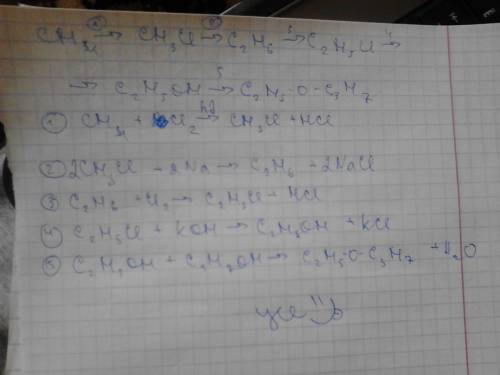 CH₄ ①→ CH₃Cl ②→ C₂H₆ 3→ C₂H₅Cl 4→
→ C₂H₅OH 5→ C₂H₅-O-C₃H₇
① CH₄ + Cl₂ hδ→ CH₃Cl + HCl
② 2CH₃Cl + 2Na → C₂H₆ + 2NaCl
③ C₂H₆ + Cl₂ → C₂H₅Cl + HCl
④ C₂H₅Cl + KOH → C₂H₅OH + KCl
⑤ C₂H₅OH + C₃H₇OH → C₂H₅-O-C₃H₇ + H₂O